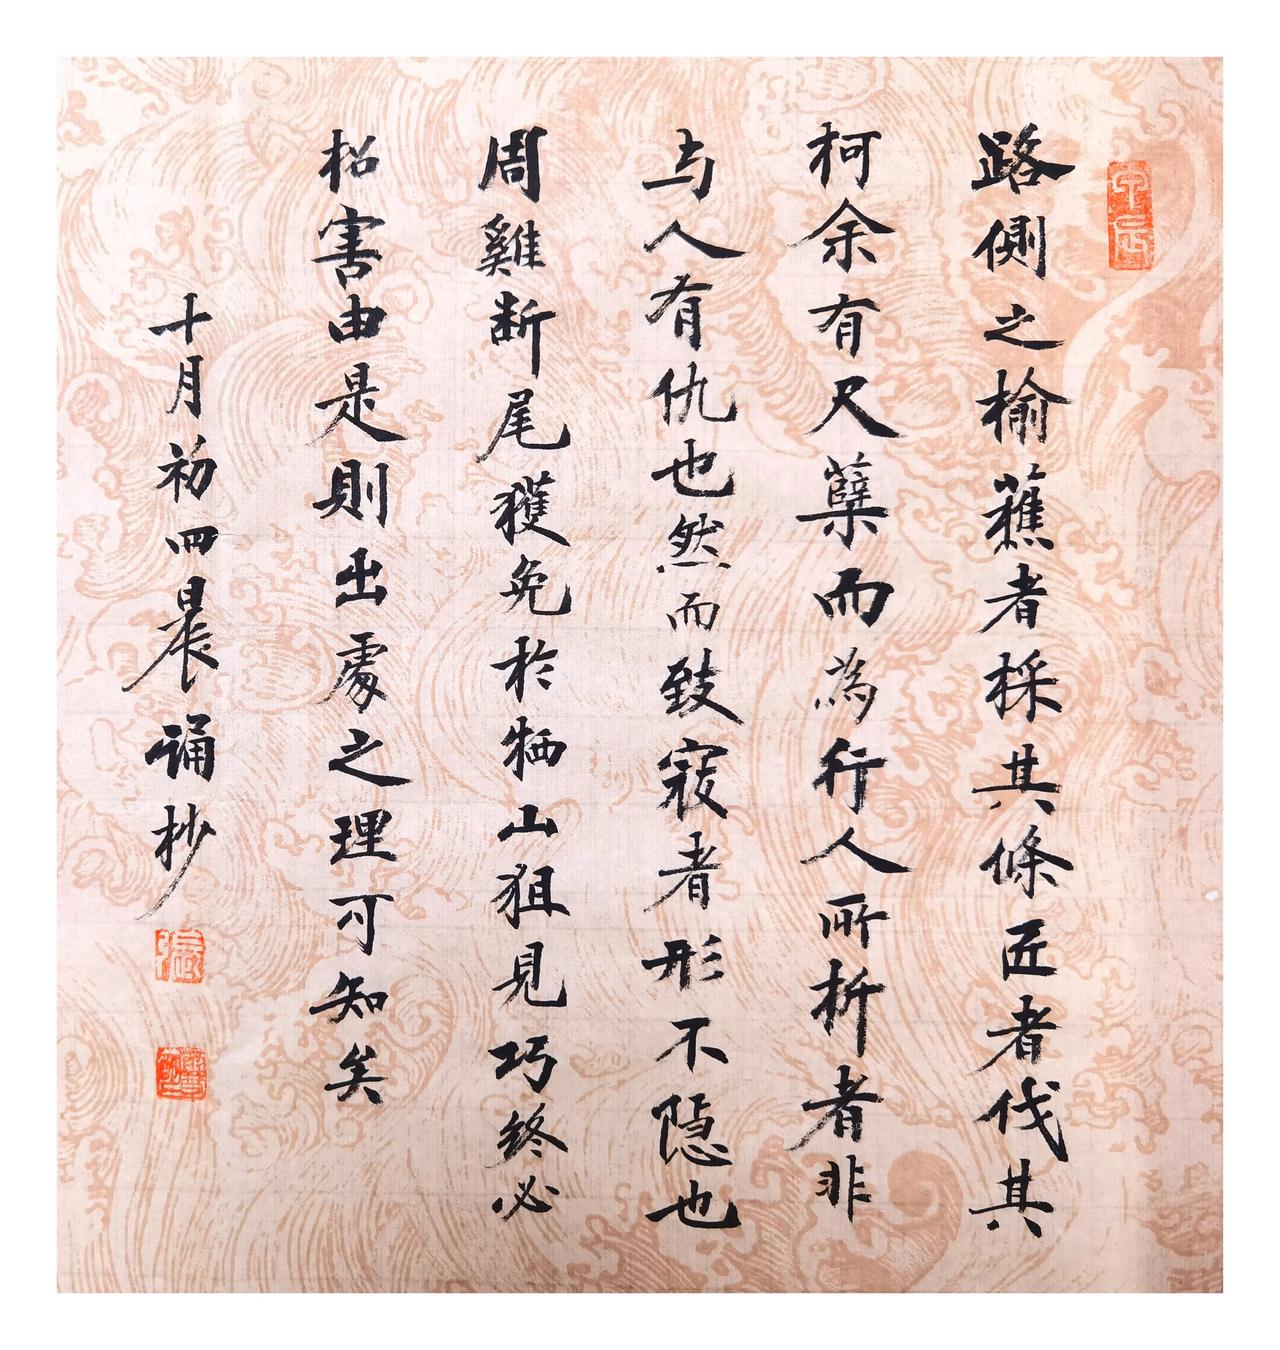 路側之榆蘸者採其條匠者伐其
柯余有尺蘖而為行人所折者非
与人有仇也然而致寇者形不隐也
周雞断尾獲免於牺山狙見巧终必
招害由是則出處之理可知矣
十月初四晨诵抄
甲辰